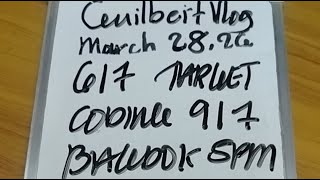 Cenilbert Vlog
March 28.26
617 TARGET
CODING 917
BALUOOK 5PM